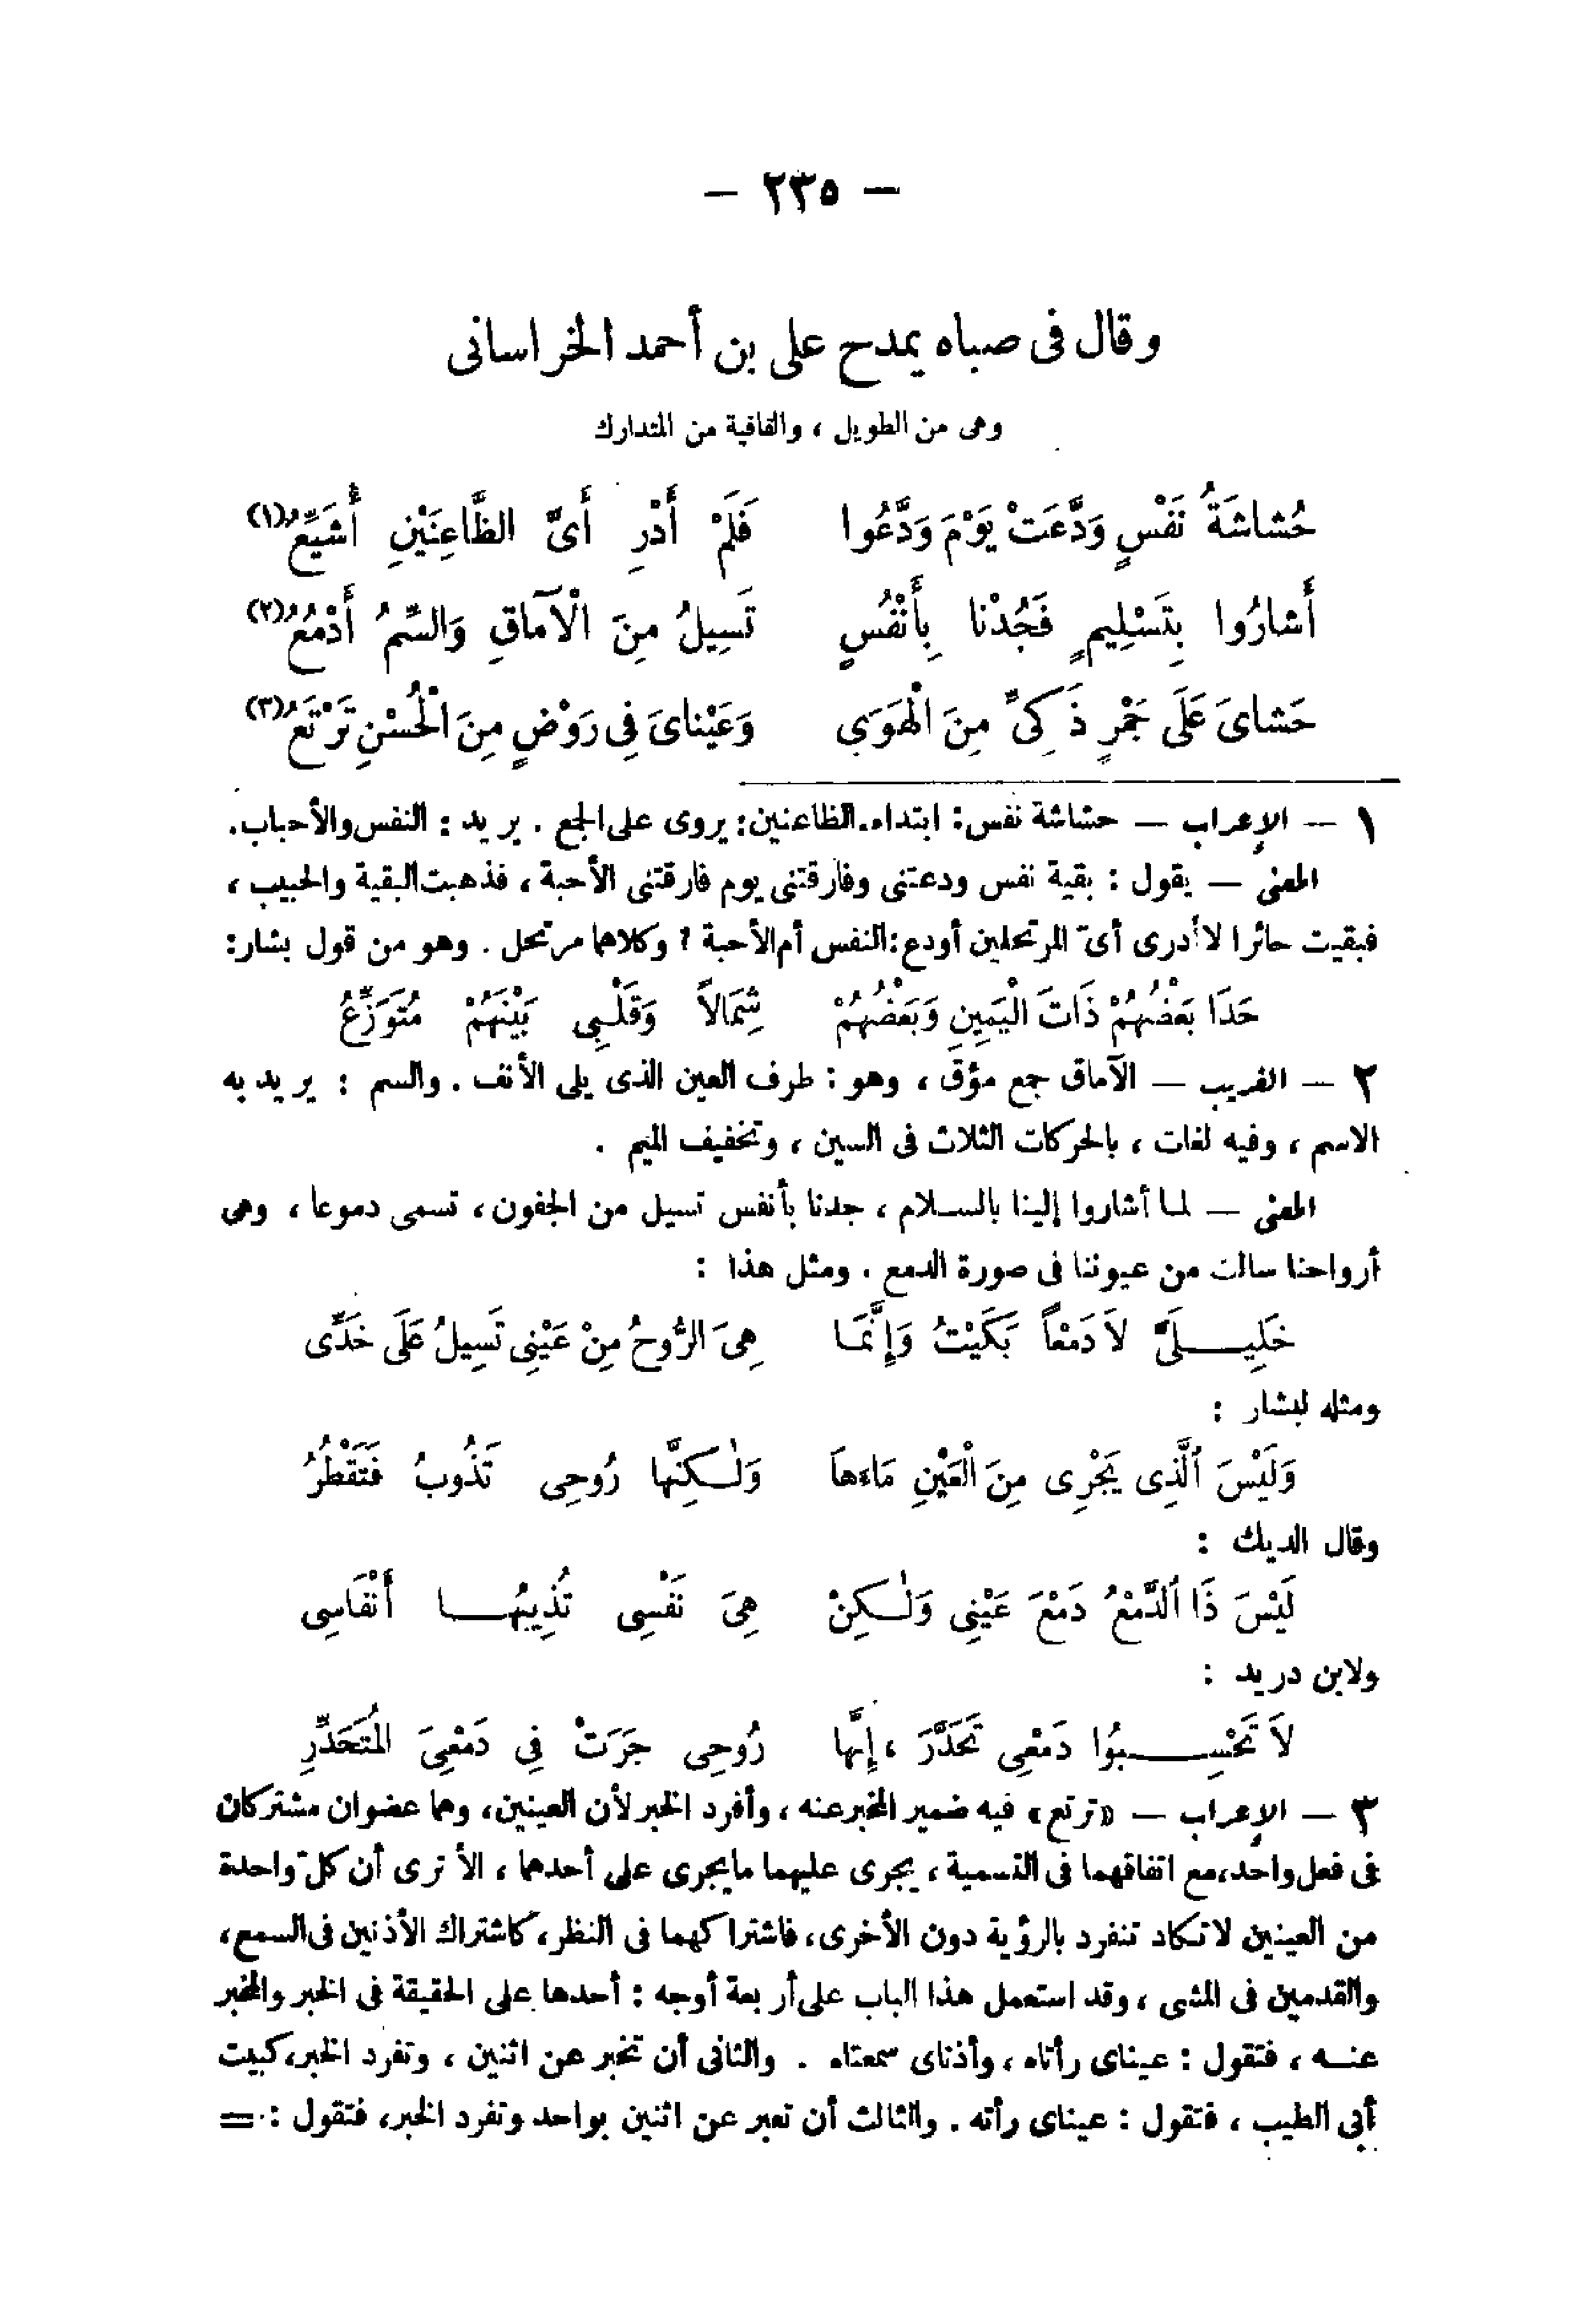 — ٢٣٥ —
وقال فى صباه يمدح على بن أحمد الخراسانى
وهى من الطويل ، والقافية من المتدارك
حُشاشَةُ نَفْسٍ وَدَّعَتْ يَوْمَ وَدَّعُوا فَلَمْ أَدْرِ أَىَّ الظَّاعِنَيْنِ أُشَيِّعُ(١)
أَشارُوا بِتَسْلِيمٍ فَجُدْنا بِأَنْفُسٍ تَسِيلُ مِنَ الْآمَاقِ وَالسِّمُ أَدْمُعُ(٢)
حَشاىَ عَلَى جَمْرٍ ذَكِىٍّ مِنَ الْهَوَى وَعَيْناىَ فِى رَوْضٍ مِنَ الْحُسْنِ تَرْتَعُ(٣)
١ — الإعراب — حشاشة نفس: ابتداء. الظاعنين: يروى على الجمع . يريد : النفس والأحباب.
المعنى — يقول : بقية نفس ودعتنى وفارقتنى يوم فارقتنى الأحبة ، فذهبت البقية والحبيب ،
فبقيت حائرا لا أدرى أىّ المرتحلين أودع: النفس أم الأحبة ؟ وكلاهما مرتحل . وهو من قول بشار:
حَدَا بَعْضُهُمْ ذَاتَ الْيَمِينِ وَبَعْضُهُمْ شِمَالاً وَقَلْبِى بَيْنَهُمْ مُتَوَزِّعُ
٢ — الغريب — الآماق جمع مؤق ، وهو : طرف العين الذى يلى الأنف . والسم : يريد به
الاسم ، وفيه لغات ، بالحركات الثلاث فى السين ، وتخفيف الميم .
المعنى — لما أشاروا إلينا بالسلام ، جدنا بأنفس تسيل من الجفون ، تسمى دموعا ، وهى
أرواحنا سالت من عيوننا فى صورة الدمع . ومثل هذا :
خَلِيلَىَّ لاَ دَمْعاً بَكَيْتُ وَإِنَّمَا هِىَ الرُّوحُ مِنْ عَيْنِى تَسِيلُ عَلَى خَدِّى
ومثله لبشار :
وَلَيْسَ الَّذِى يَجْرِى مِنَ الْعَيْنِ مَاءَهَا وَلٰكِنَّها رُوحِى تَذُوبُ فَتَقْطُرُ
وقال الديك :
لَيْسَ ذَا الدَّمْعُ دَمْعَ عَيْنِى وَلٰكِنْ هِىَ نَفْسِى تُذِيبُهَا أَنْفَاسِى
ولابن دريد :
لاَ تَحْسِبُوا دَمْعِى تَحَدَّرَ ، إِنَّها رُوحِى جَرَتْ فِى دَمْعِىَ المُتَحَدِّرِ
٣ — الإعراب — «ترتع» فيه ضمير المخبر عنه ، وأفرد الخبر لأن العينين، وهما عضوان مشتركان
فى فعل واحد، مع اتفاقهما فى التسمية ، يجرى عليهما ما يجرى على أحدهما ، الا ترى أن كلّ واحدة
من العينين لا تكاد تنفرد بالرؤية دون الأخرى، فاشتراكهما فى النظر، كاشتراك الأذنين فى السمع،
والقدمين فى المشى ، وقد استعمل هذا الباب على أربعة أوجه : أحدها على الحقيقة فى الخبر والمخبر
عنه ، فتقول : عيناى رأتاه ، وأذناى سمعتاه . والثانى أن تخبر عن اثنين ، وتفرد الخبر، كبيت
أبى الطيب ، فتقول : عيناى رأته . والثالث أن تعبر عن اثنين بواحد وتفرد الخبر، فتقول : =